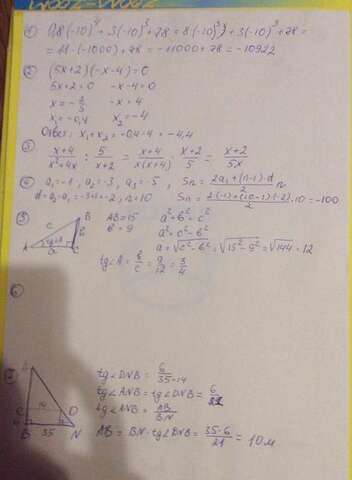 ① 0,8(-10)⁴ + 3(-10)³ + 78 = 8·(-10)³ + 3(-10)³ + 78 =
= 11·(-1000) + 78 = -11000 + 78 = -10922
② (5x+2)(-x-4)=0
5x+2=0 -x-4=0
x=-2/5 -x=4
x₁=-0,4 x₂=-4
Ответ: x₁+x₂=-0,4-4=-4,4
③ (x+4)/(x²+4x) : 5/(x+2) = (x+4)/(x(x+4)) · (x+2)/5 = (x+2)/(5x)
④ a₁=-1, a₂=-3, a₃=-5, Sn = (2a₁+(n-1)·d)/2 · n
d=a₂-a₁=-3+1=-2, n=10 Sn = (2·(-1)+(10-1)(-2))/2 · 10 = -100
⑤ AB=15 a²+b²=c²
b=9 a²=c²-b²
a=√(c²-b²)=√(15²-9²)=√144=12
tg∠A = b/c = 9/12 = 3/4
A B C c b a
⑥
⑦ tg∠DNB = 6/(35-14)
tg∠ANB = tg∠DNB = 6/21
tg∠ANB = AB/BN
AB = BN·tg∠DNB = (35·6)/21 = 10м
A C D B N 14 35